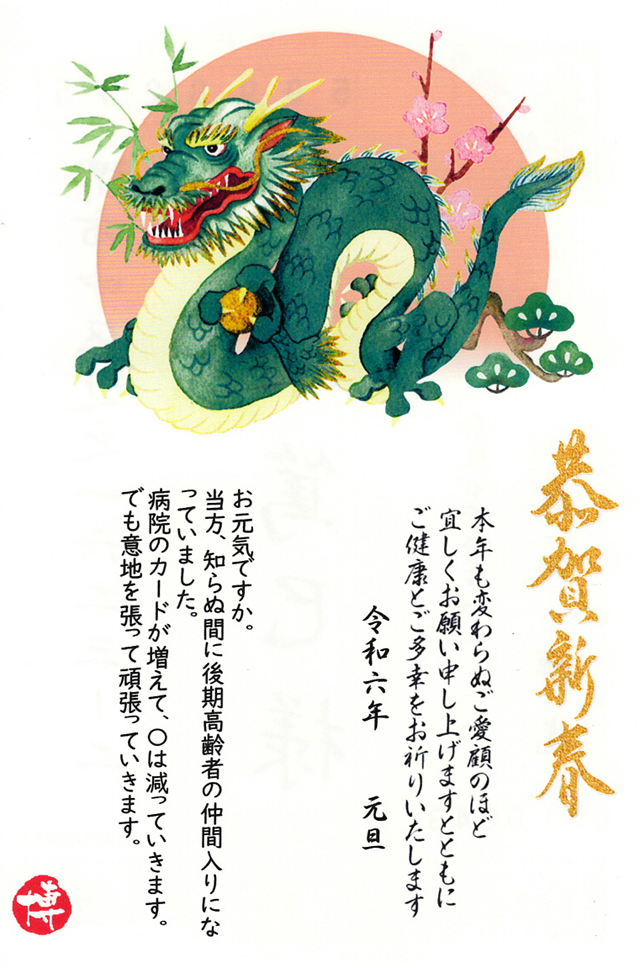 恭賀新春
本年も変わらぬご愛顧のほど
宜しくお願い申し上げますとともに
ご健康とご多幸をお祈りいたします
令和六年　元旦
お元気ですか。
当方、知らぬ間に後期高齢者の仲間入りにな
っていました。
病院のカードが増えて、〇は減っていきます。
でも意地を張って頑張っていきます。
博